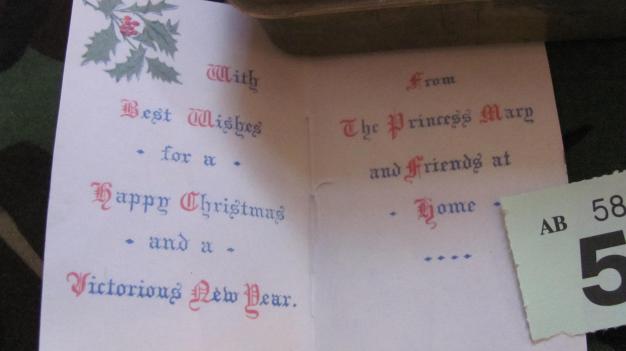 With
Best Wishes
· for a ·
Happy Christmas
· and a ·
Victorious New Year.
From
The Princess Mary
and Friends at
· Home ·
····
AB 58
5